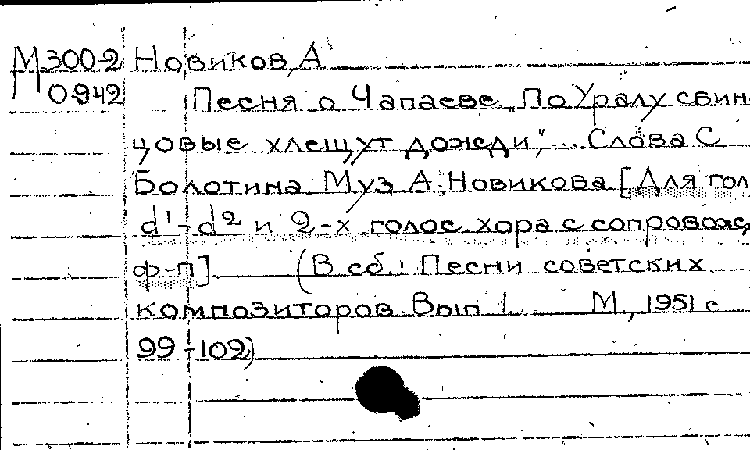 М300-2 Новиков, А
0942 Песня о Чапаеве „По Уралу свин-
цовые хлещут дожди", ... Слова С
Болотина Муз А. Новикова [Для гол
d¹-d² и 2-х голос. хора с сопровож.
ф-п] (В сб.: Песни советских
композиторов Вып 1 М., 1951 с
99-109)